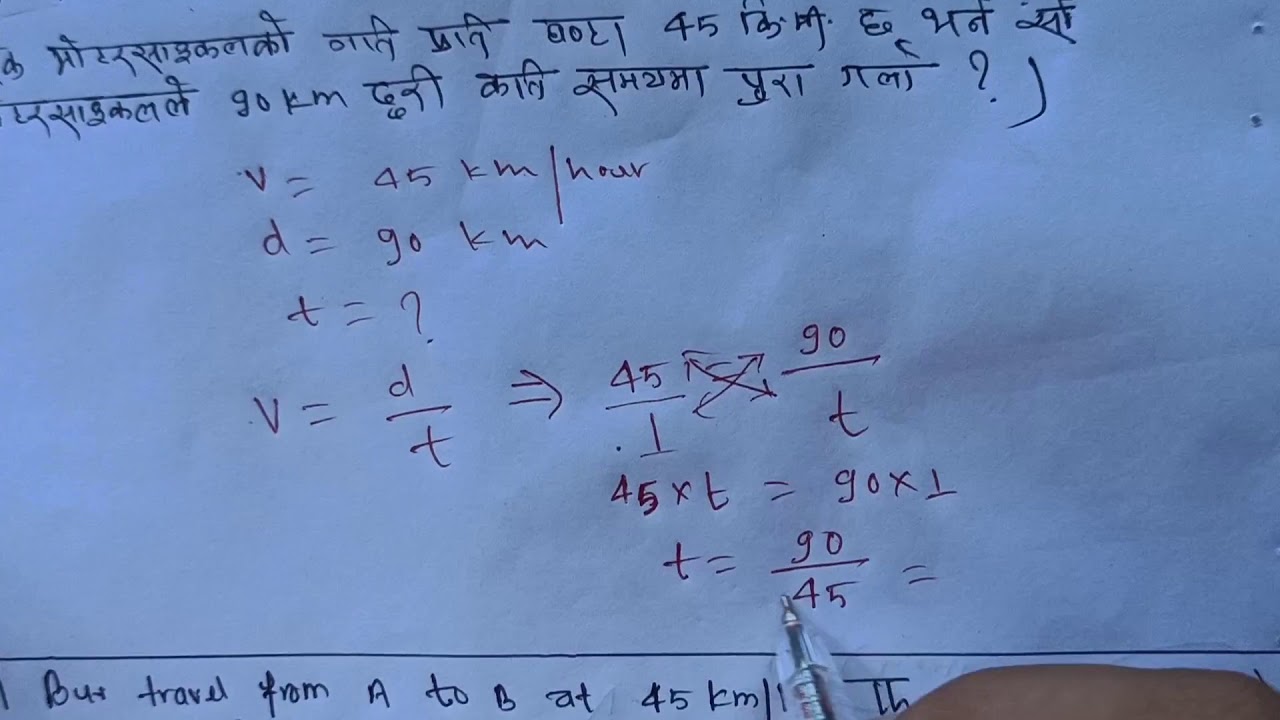 क मोटरसाइकलको गति प्रति घण्टा 45 कि.मी. छ भने सो
टरसाइकलले 90 km दुरी कति समयमा पुरा गर्ला ? )
v = 45 km/hour
d = 90 km
t = ?
v = d/t ⇒ 45/1 90/t
45 × t = 90 × 1
t = 90/45 =
Bus travel from A to B at 45 km/